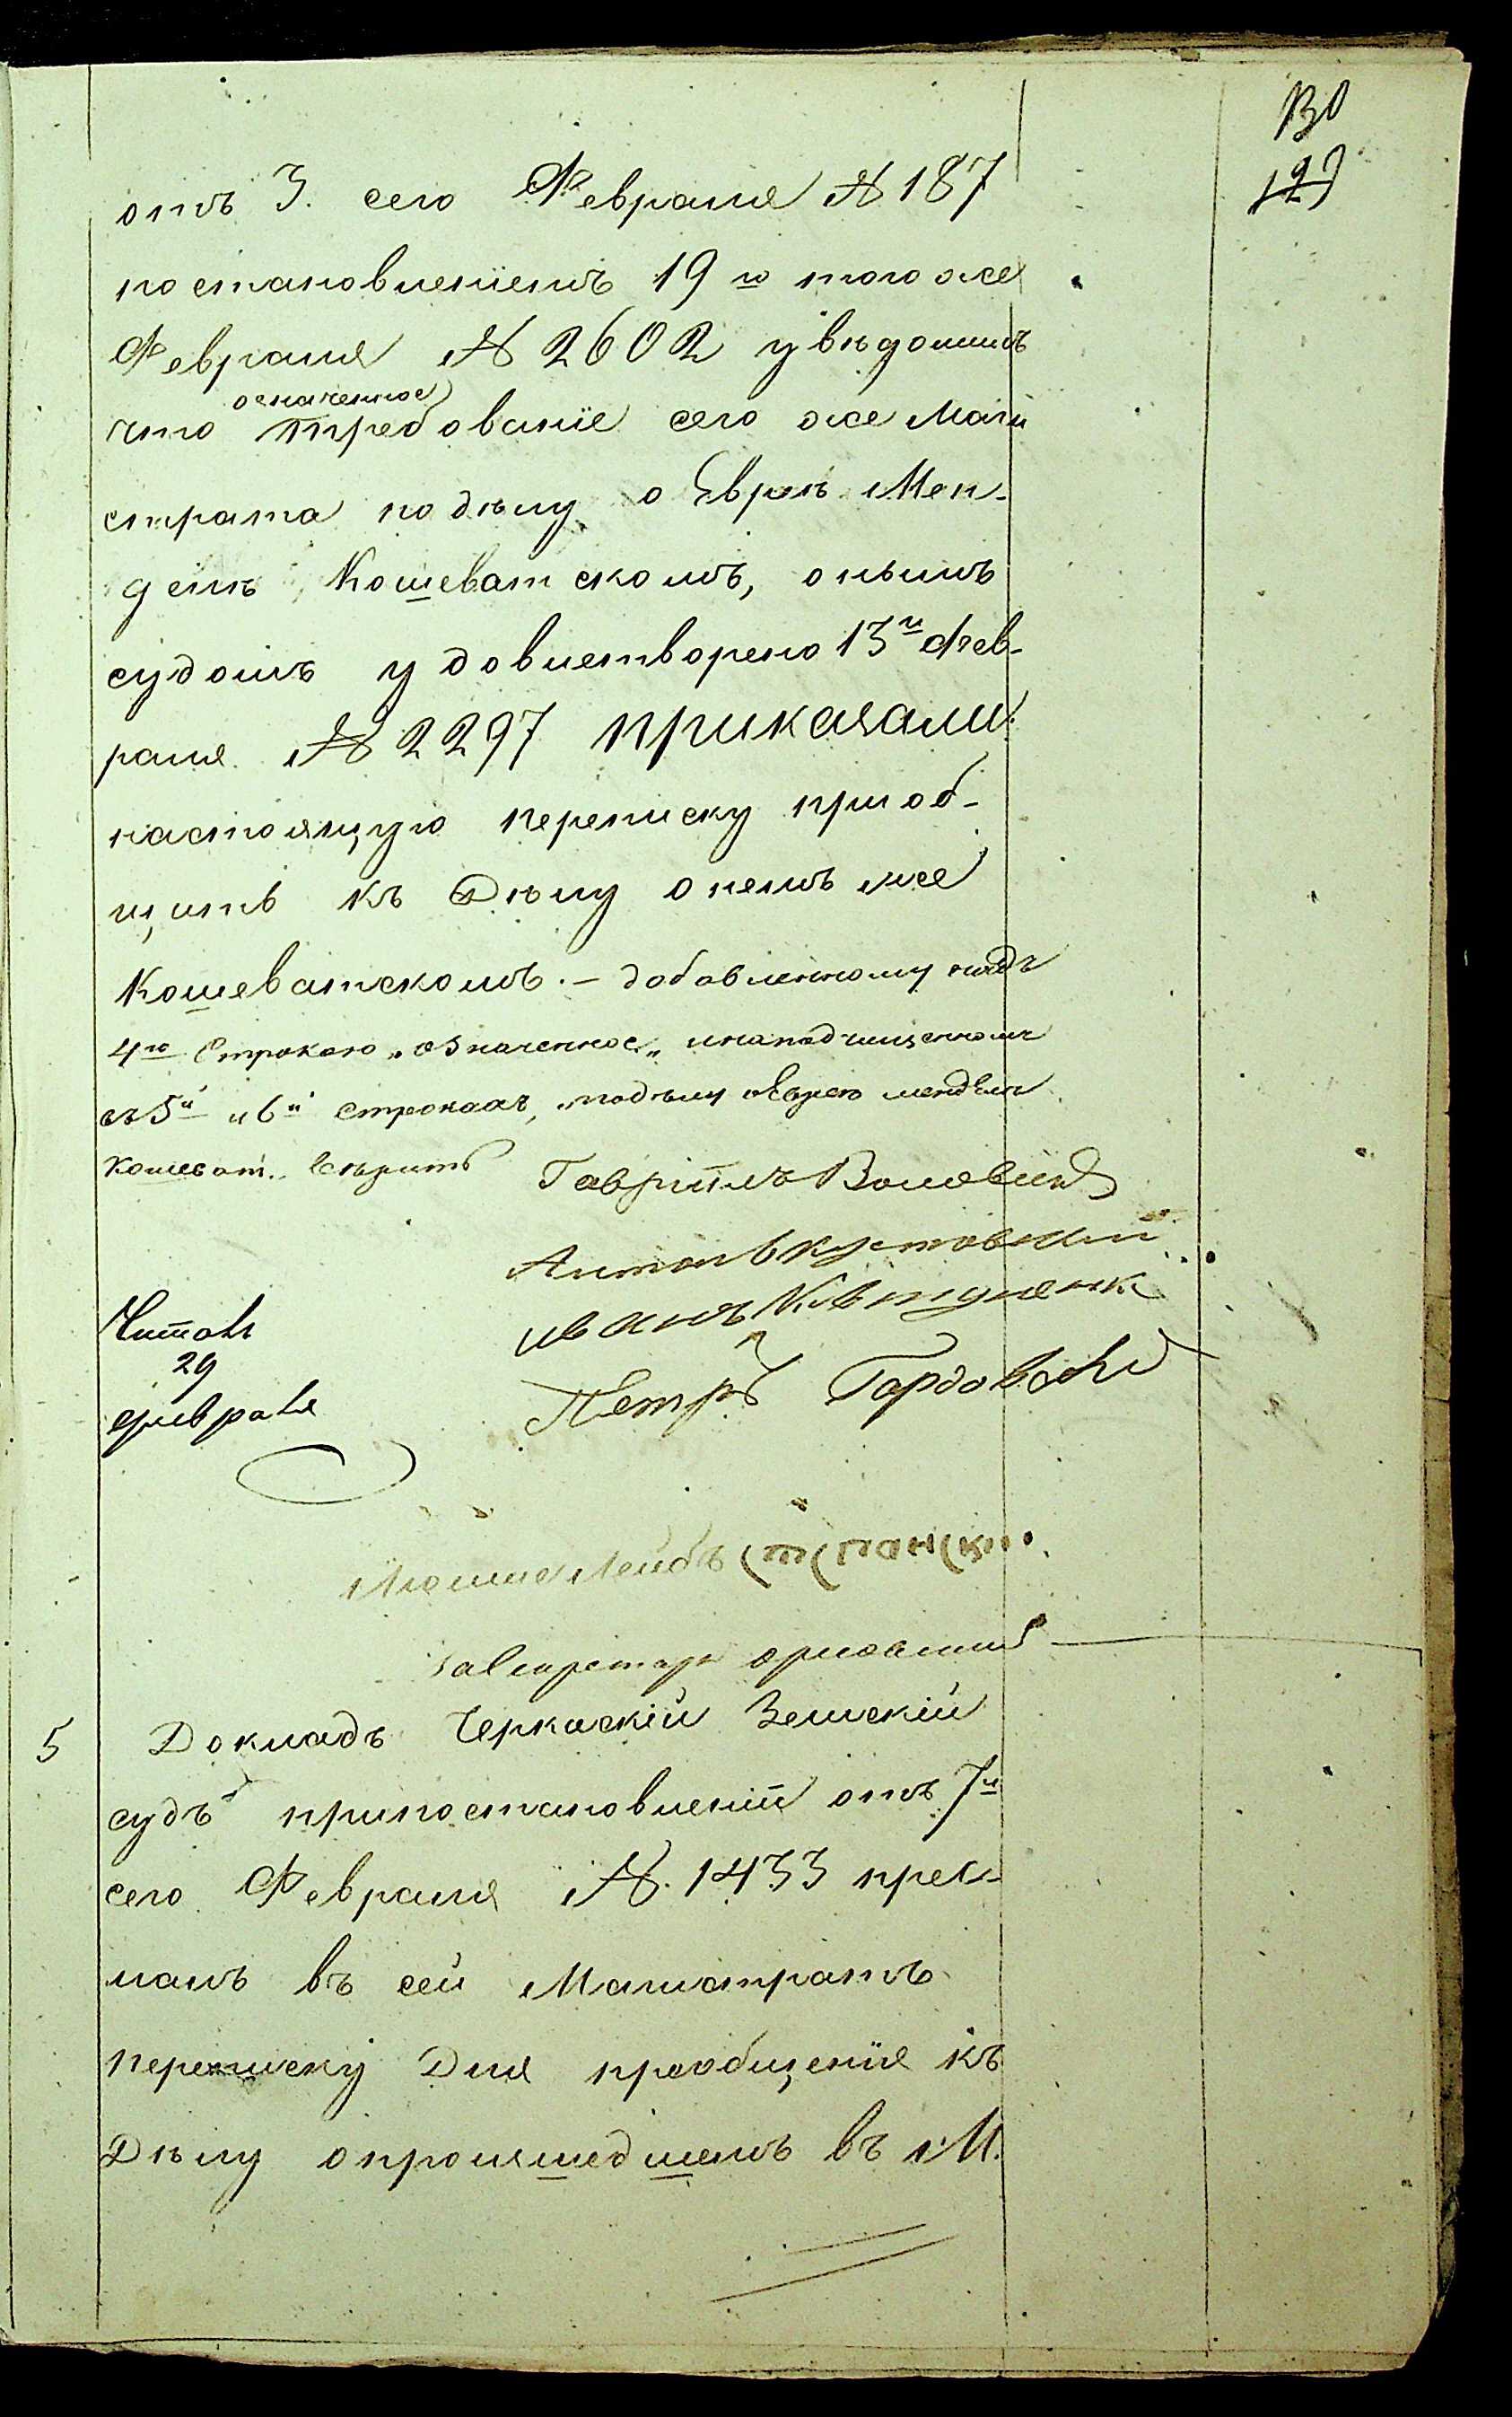 130
127
отъ 3. сего Февраля № 187
постановленіемъ 19го того же
Февраля № 2602 увѣдомилъ
означенное
что требованіе сего же Маги
страта по дѣлу о Евреѣ Мен-
делѣ Кошеватскомъ, онымъ
судомъ удовлетворено 13и Фев-
раля № 2297 приказали:
настоящую переписку приоб-
щить къ Дѣлу о немъ же
Кошеватскомъ. – добавленному надъ
4ю Строкою „означенное„ и на подчищенномъ
въ 5й и 6й строкахъ, „по дѣлу о Евреѣ Менделѣ
Кошеват.„ вѣрить
Гавріилъ
Антонъ Кустовскій
Иванъ
Петръ Гордовскій
Читалъ
29
февраля
Лейбъ
5
Докладъ Черкаскій Земскій
судъ при постановленіи отъ 7и
сего Февраля №. 1433 прес-
лалъ въ сей Магистратъ
переписку Для преобщенія къ
Дѣлу о произшедшемъ въ М.